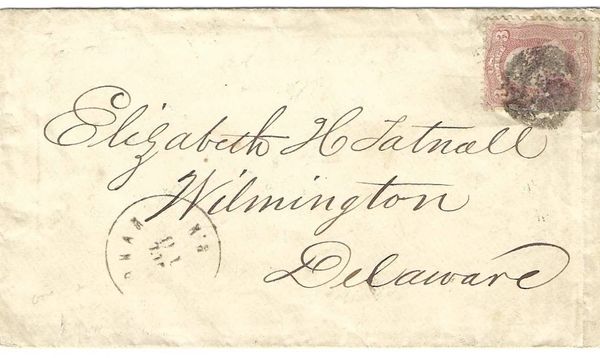 3
Elizabeth H Tatnall
Wilmington
Delaware